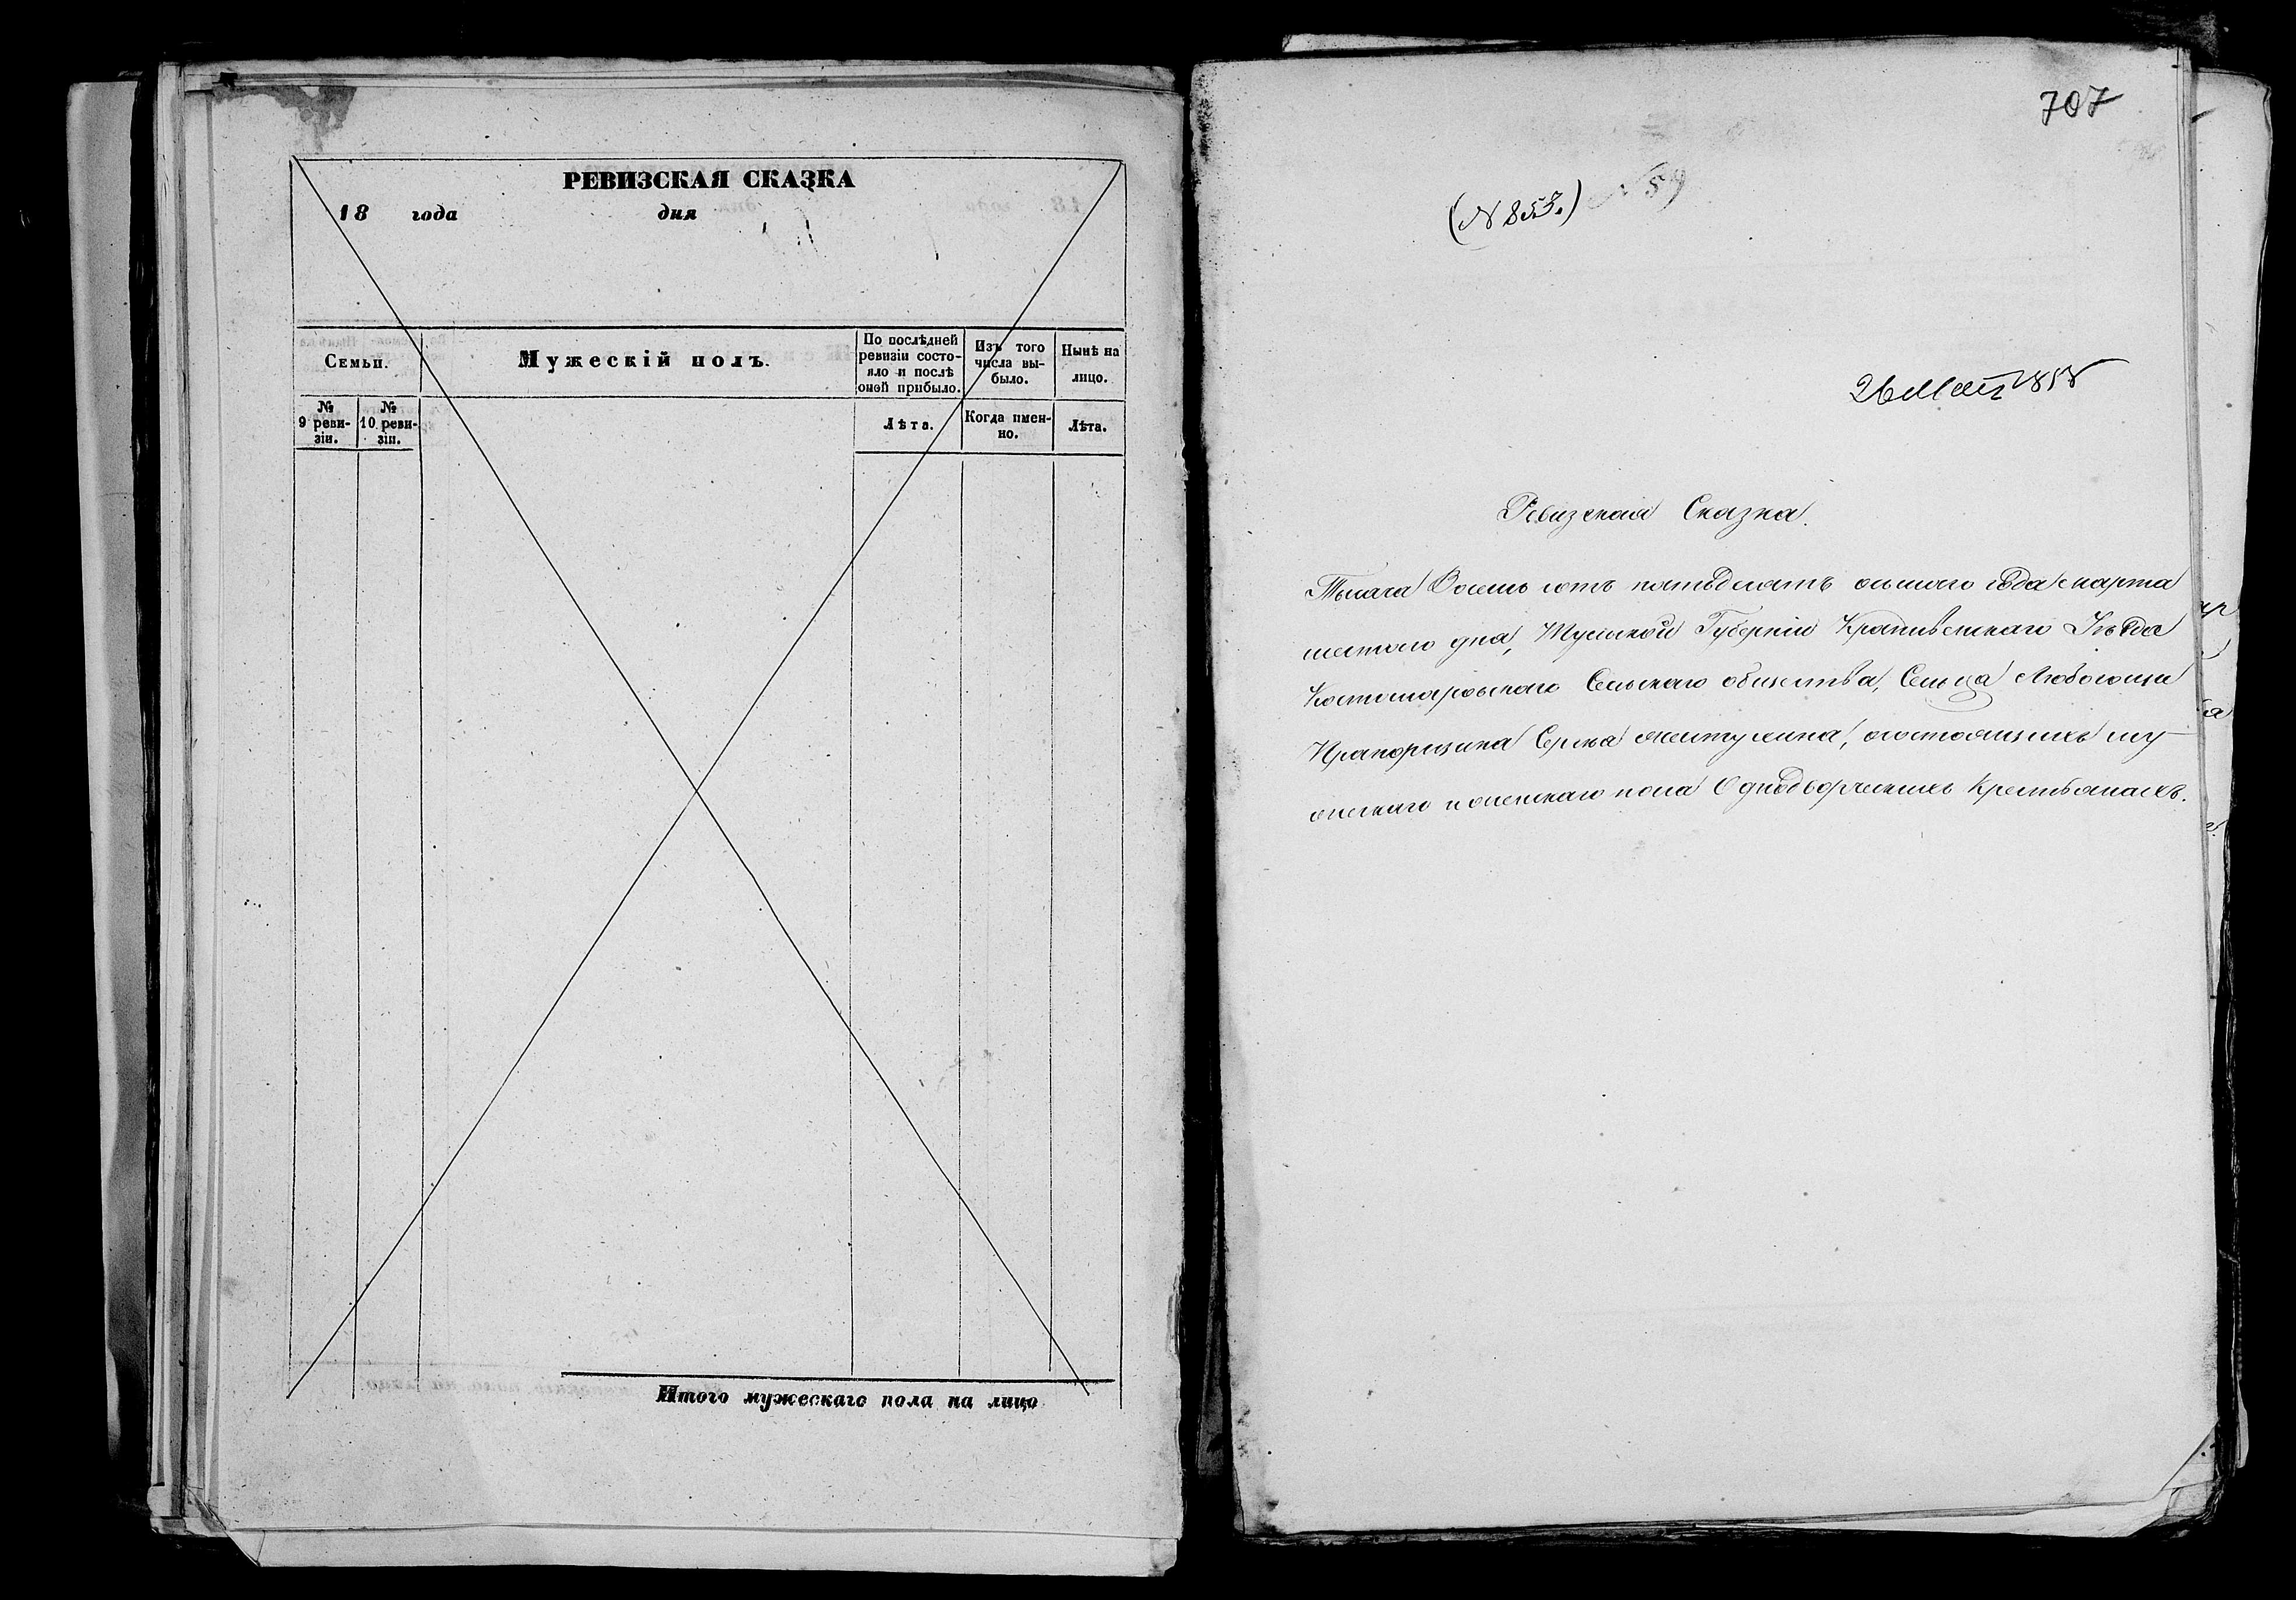 РЕВИЗСКАЯ СКАЗКА
18 года дня
Семьи.
Мужескій полъ.
По послѣдней
ревизіи состо-
яло и послѣ
оной прибыло.
Изъ того
числа вы-
было.
Нынѣ на
лицо.
№
9 реви-
зіи.
№
10 реви-
зіи.
Лѣта.
Когда имен-
но.
Лѣта.
Итого мужескаго пола на лицо
707
(№ 853.) № 59
26 Маія 1858
Ревизская Сказка.
Тысяча Восемь сотъ пятьдесятъ осьмого года марта
шестого дня, Тульской Губерніи Крапивенскаго Уѣзда
Костомаровскаго Сельскаго общества, Сельца Любогощи
Прапорщика Сергѣя состоящихъ му-
жескаго и женскаго пола Однодворческихъ Крестьянахъ.